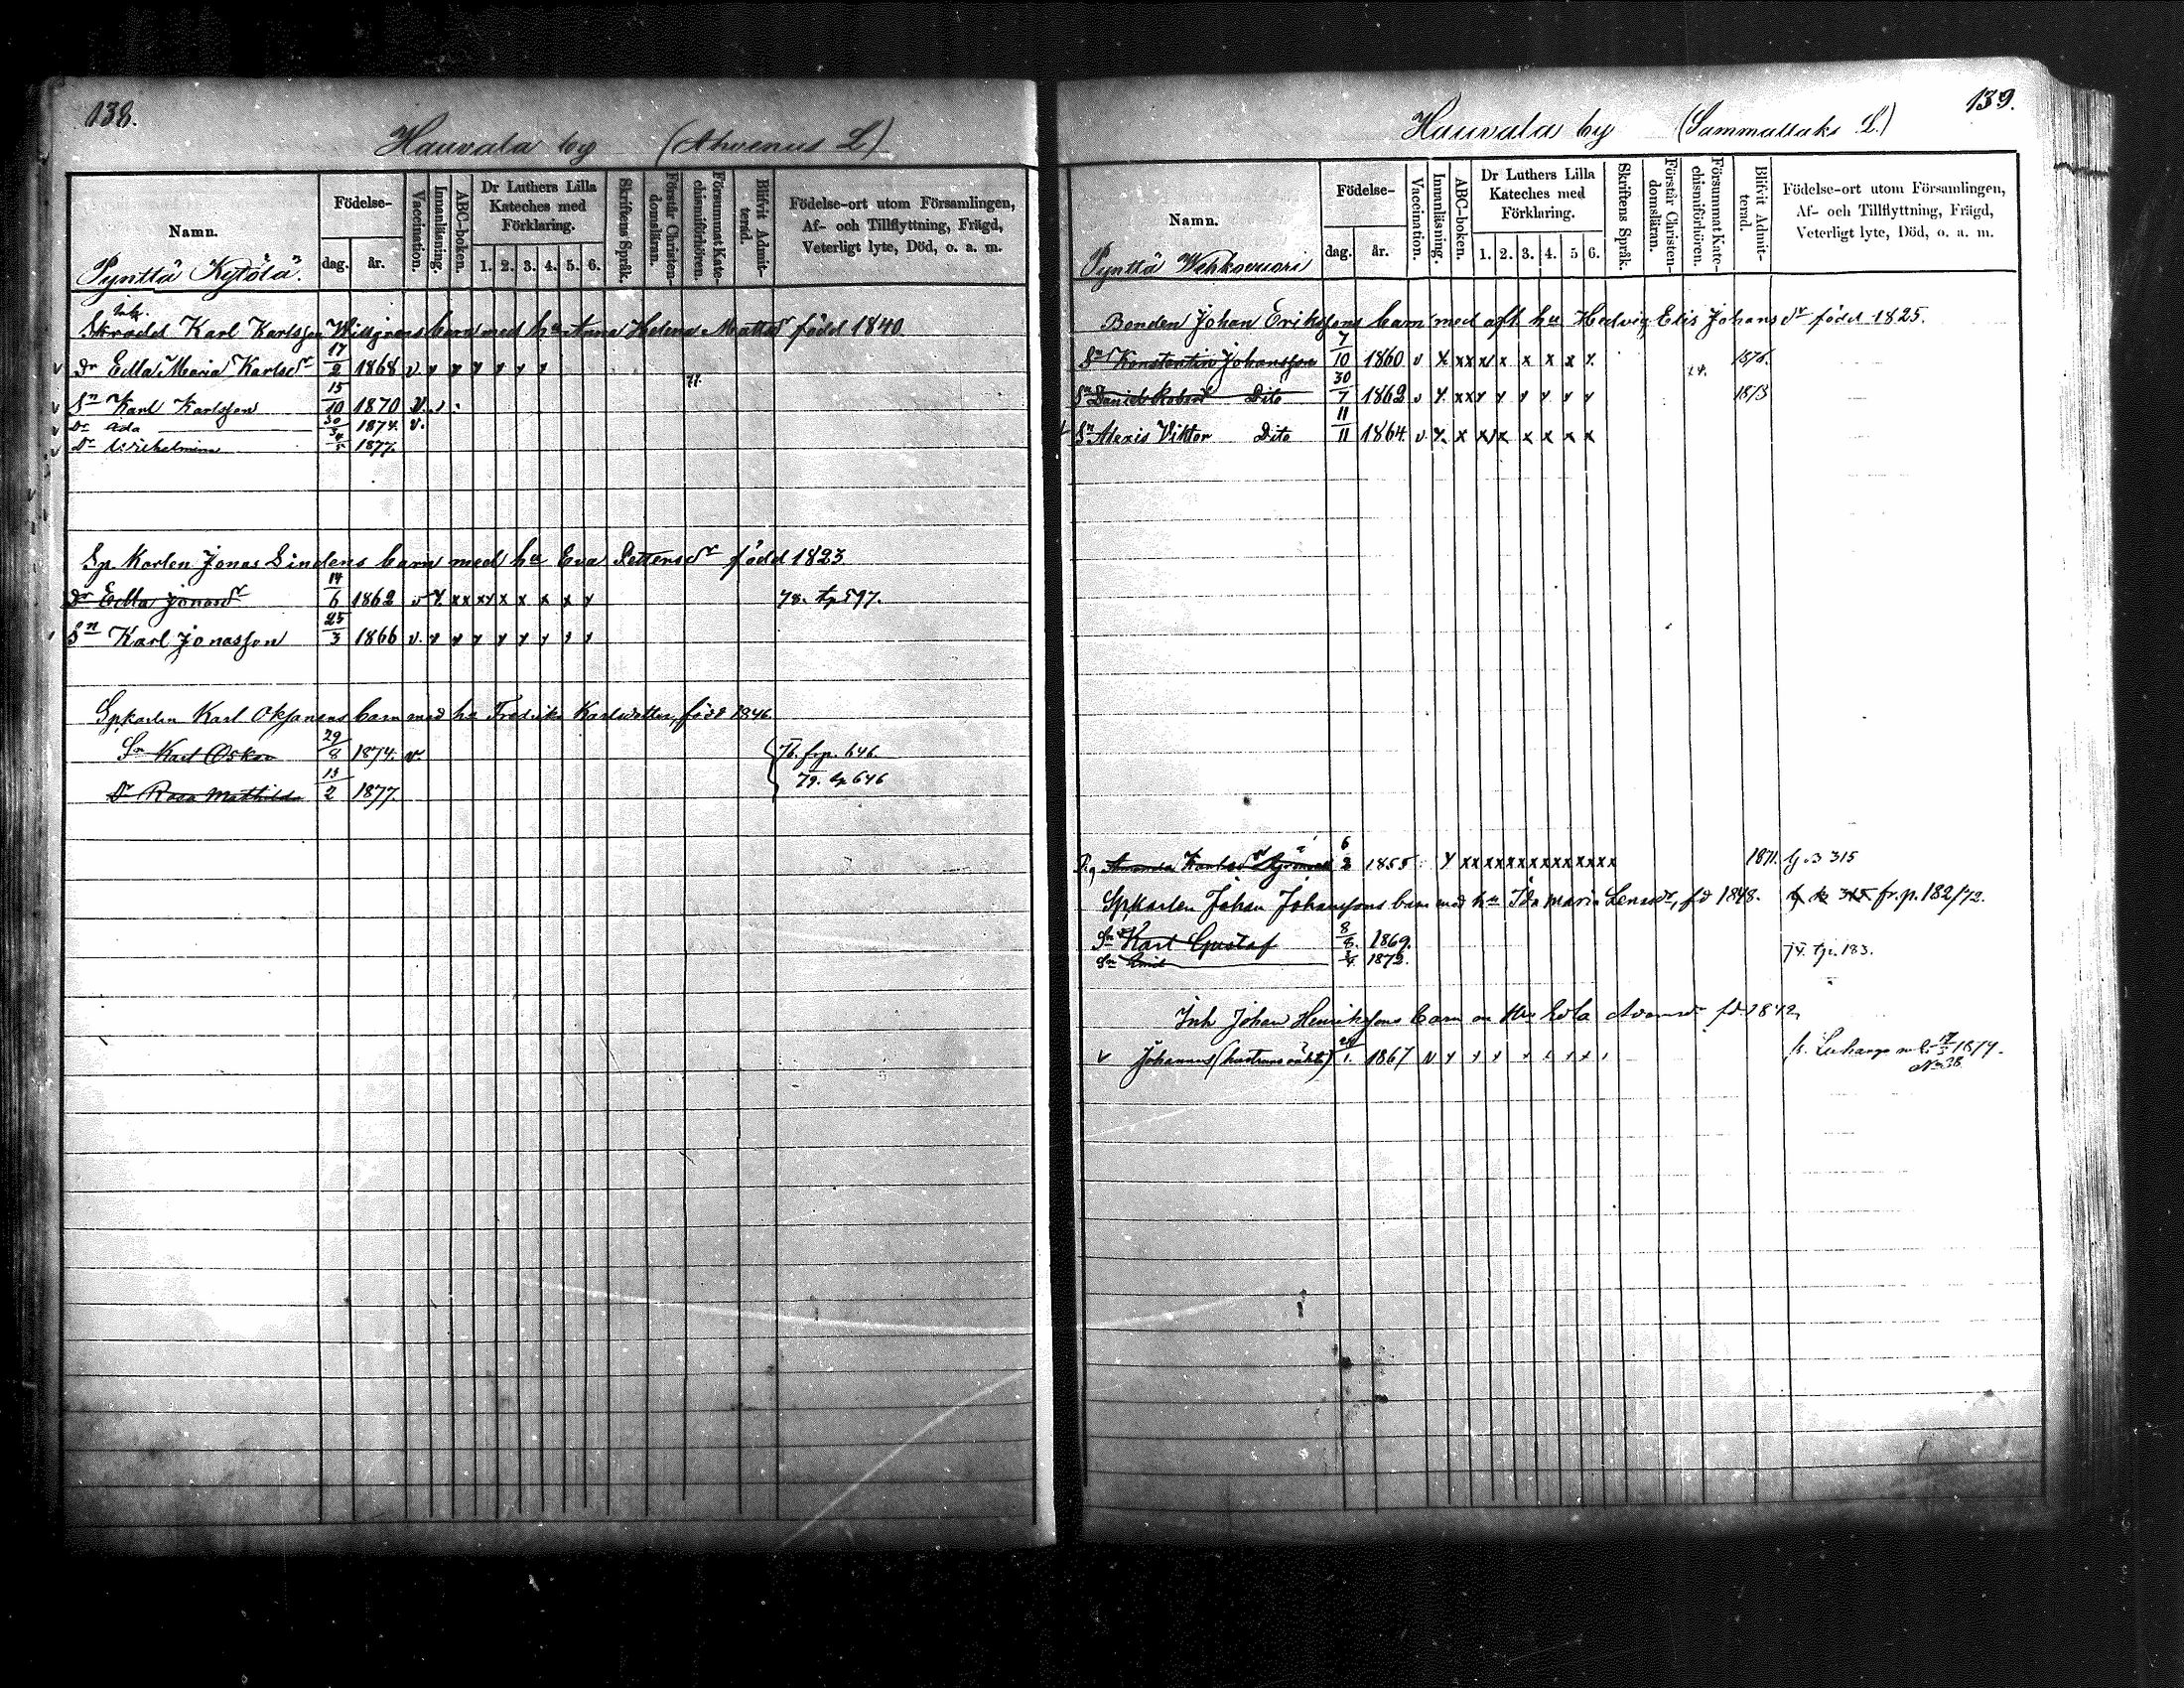 138.
Hauvala by (Ahvenus L)
Namn.
Födelse-
dag. år.
Vaccination.
Innanläsning.
ABC-boken.
Dr Luthers Lilla Kateches med Förklaring.
1. 2. 3. 4. 5. 6.
Skriftens Språk.
Förstår Christendomsläran.
Försummat Katechismiförhören.
Blifvit Admitterad.
Födelse-ort utom Församlingen, Af- och Tillflyttning, Frägd, Veterligt lyte, Död, o. a. m.
Pynttä Kytölä.
Inh.
Skrädd Karl Karlsson Willgrens barn med hu Anna Helena Mattsdr född 1840
v Dr Edla Maria Karlsdr 17/2 1868 v y y y y y y
77.
v Sn Karl Karlsson 15/10 1870 v.
v Dr Ada 30/3 1874. v.
v Dr Wilhelmina 5 1877.
Sp. Karlen Jonas Lindens barn med hu Eva Pettersdr född 1823
Dr Edla Jonasdr 14/6 1862 v y. xx xy x x x x y 78. tp 597.
Sn Karl Jonasson 25/3 1866 v. y y y y y y y y
Spkarlen Karl Oksanens barn med hu Fredrika Karlsdotter, född 1846.
Sn Karl Oskar 29/8 1874. v. 76. frp. 646.
79. tp 646
Dr Rosa Mathilda 13/2 1877.
139.
Hauvala by (Sammallaks L.)
Namn.
Födelse-
dag. år.
Vaccination.
Innanläsning.
ABC-boken.
Dr Luthers Lilla Kateches med Förklaring.
1. 2. 3. 4. 5 6.
Skriftens Språk.
Förstår Christendomsläran.
Försummat Katechismiförhören.
Blifvit Admitterad.
Födelse-ort utom Församlingen, Af- och Tillflyttning, Frägd, Veterligt lyte, Död, o. a. m.
Pynttä Wehkovuori
Bonden Johan Erikssons barn med afl hu Hedvig Elis Johansdr född 1825.
Sn Konstantin Johansson 7/10 1860 v y. xx x/ x x x x y. 1876.
Sn Daniel Robert Dito 30/7 1862 v y. xx y y y y y y
Sn Alexis Viktor Dito 11/11 1864. v. y. x x/x x x x x
Amanda Karlsdr 6/2 1855 y xx xx xx xx xx xx xx 1871. 315
Spkarlen Johan Johanssons barn med hu Ida Maria Lenasdr, fd 1848. fr. p. 182/72.
Sn Karl Gustaf 8/8. 1869.
74. tp. 183.
Sn Emil 4. 1872.
Inh Johan Henrikssons barn fd 1842,
v Johannes (hustruns oäkta) 1. 1867
fr. Luhanga 1874.
No 38.